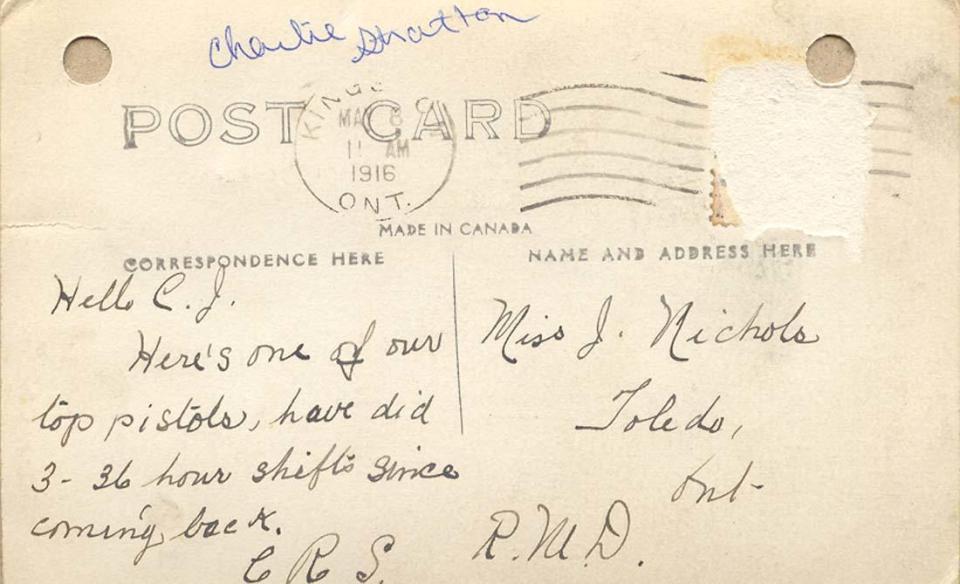 Charlie Stratton
POST CARD
KINGS
MAY 8
11 AM
1916
ONT.
MADE IN CANADA
CORRESPONDENCE HERE
Hello C. J.
Here's one of our
top pistols, have did
3- 36 hour shifts since
coming back.
C R S.
NAME AND ADDRESS HERE
Miss J. Nichols
Toledo,
Ont-
R.M.D.